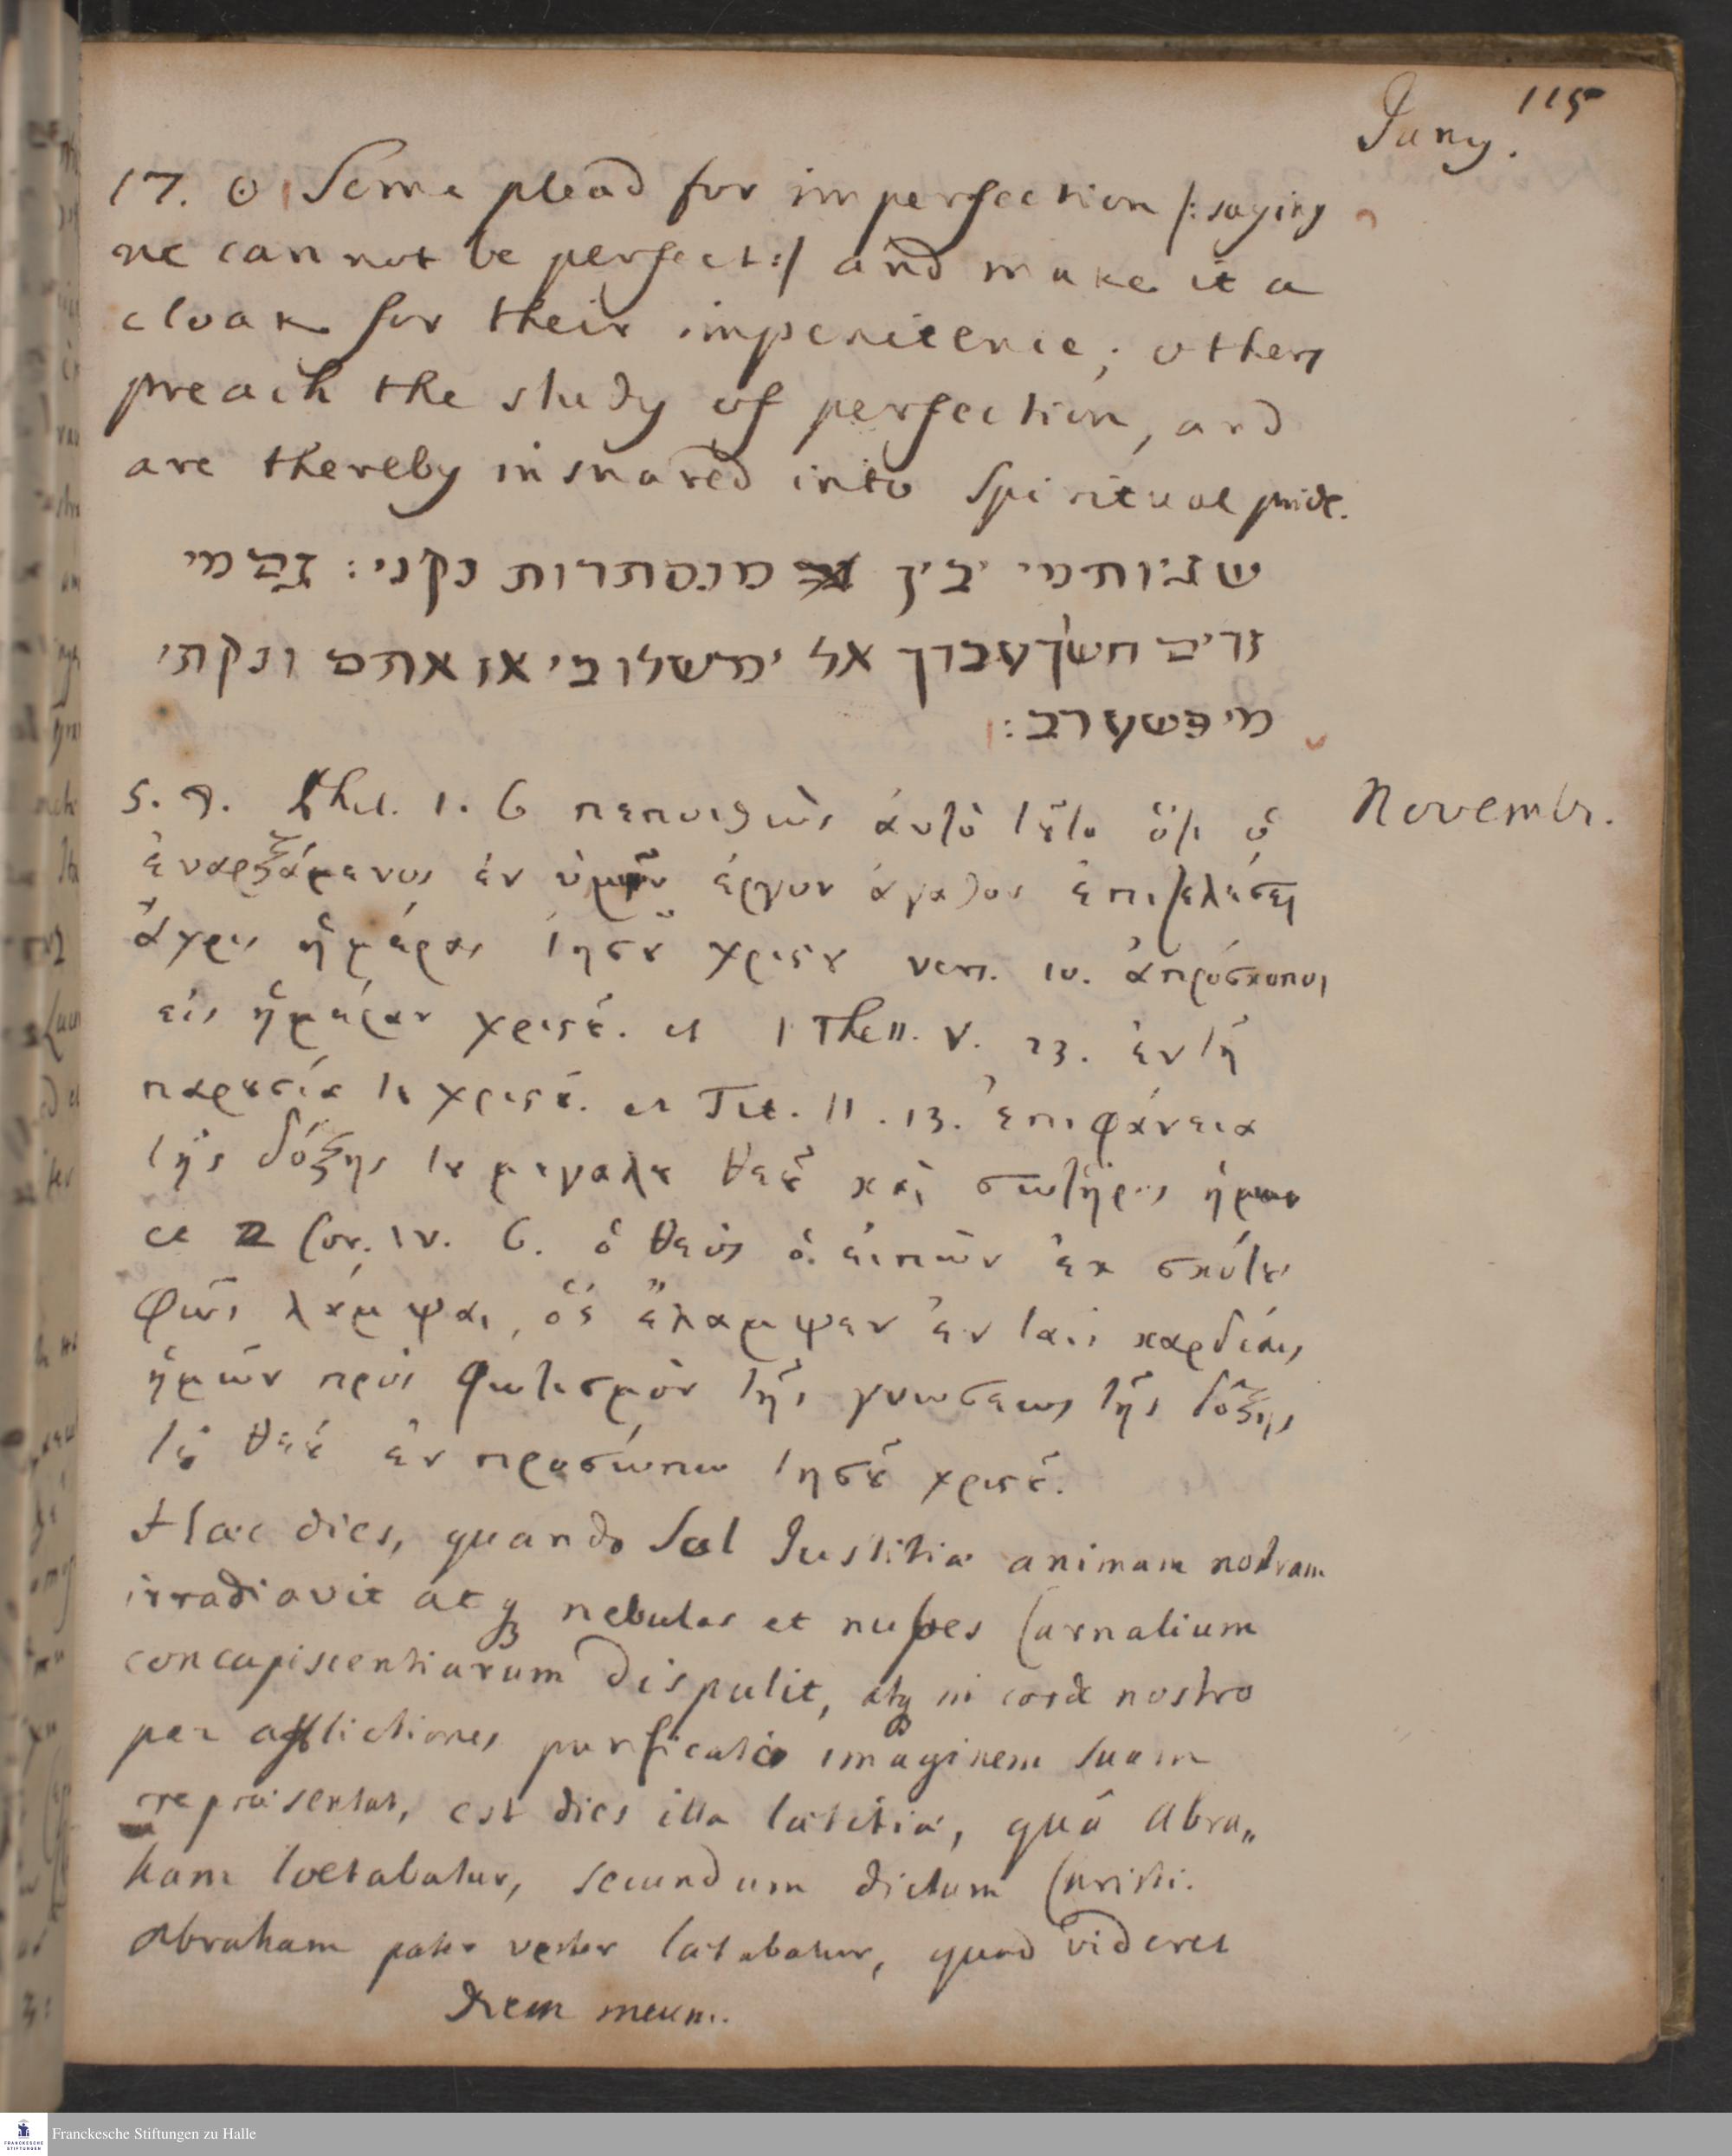 115
Juny.
17. ☉ Some plead for imperfection /: saying
we can not be perfect :/ and make it a
cloak for their impenitence; others
preach the study of perfection, and
are thereby insnared into Spiritual pride.
שגיות מי יבין מנסתרות נקני: גם מי
זדים חשך עבדך אל ימשלו בי אז אתם ונקתי
מי פשע רב:
Novembr.
5. Phil. 1. 6 πεποιθὼς ἀυτὸ τȣ͂το ὅτι ὁ
ἐναρξάμενος ἐν ὑμῖν έργον ἀγαθον ἐπιτελέσει
ἄχρις ἡμέρας Ιησȣ͂ χριϛȣ vers. 10. ἀπρόσκοποι
εἰς ἡμέραν χριϛȣ͂. et 1 Thess. V. 23. ἐν τῆ
παρȣσία τȣ χριϛȣ͂. et Tit. 11. 13. ἐπιφάνεια
τῆς δόξης τȣ μεγαλȣ θεȣ͂ καὶ σωτῆρος ἡμων
et 2 Cor. IV. 6. ὁ θεὸς ὁ εἰπὼν ἐκ σκότȣς
φῶς λάμψαι, ὅς ἔλαμψεν ἐν ταις καρδίαις
ἡμῶν πρὸς φωτισμὸν τῆς γνωσεως τῆς δόξης
τȣ͂ θεȣ͂ ἐν προσώπω Ιησȣ͂ χριϛȣ͂.
Hæc dies, quando Sol Justitiæ animam nostram
irradiavit atq nebulas et nubes Carnalium
concupiscentiarum dispulit, atq in corde nostro
per afflictiones purificato imaginem suam
repræsentat, est dies illa lætitiæ, quâ Abra„
ham lœtabatur, secundum dictum Christi.
Abraham pater vester lætabatur, quod videret
Diem meum.
Franckesche Stiftungen zu Halle
FRANCKESCHE
STIFTUNGEN